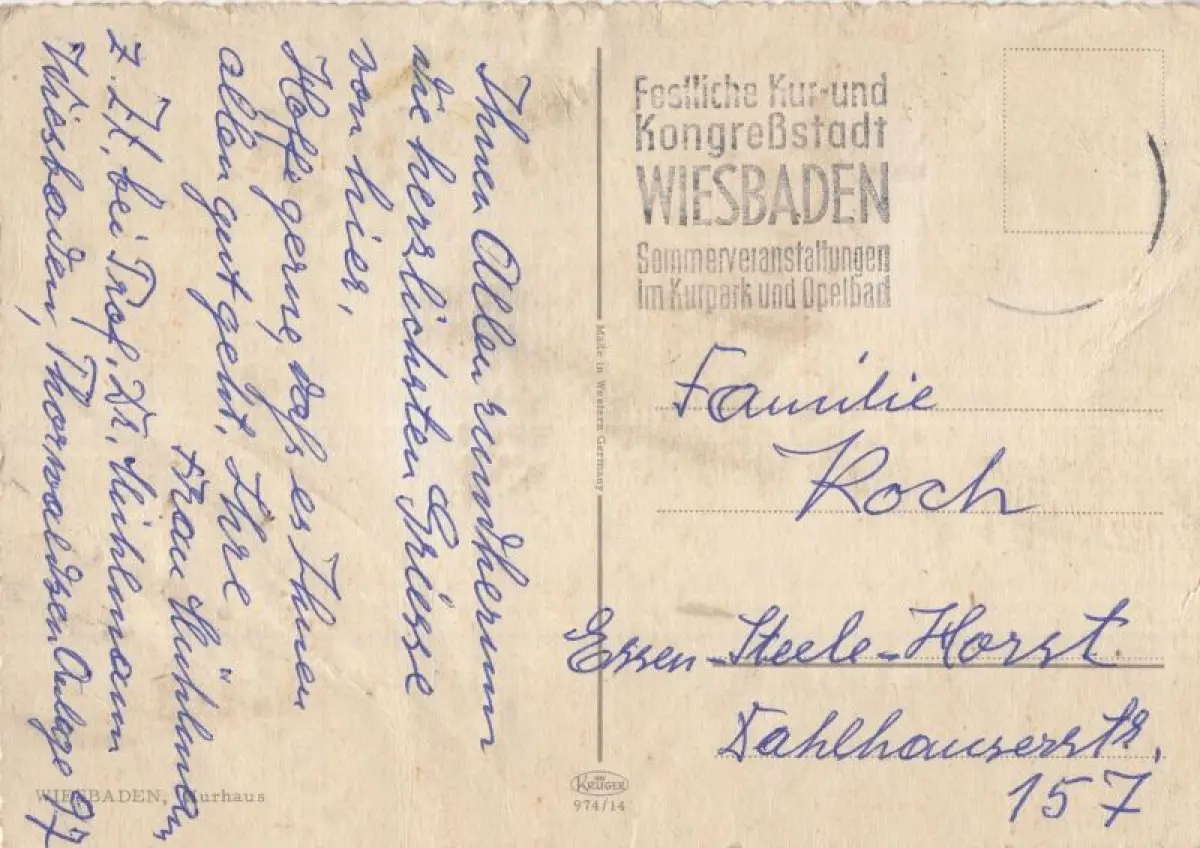 Ihnen Allen rundherum
die herzlichsten Grüsse
von hier,
Hoffe gerne, daß es Ihnen
allen gut geht. Ihre
Frau Mühlmann
z. Zt. bei Prof. Dr. Mühlmann
Wiesbaden, Thorvaldsen Anlage 97
WIESBADEN, Kurhaus
Made in Western Germany
KRÜGER
974/14
Festliche Kur- und
Kongreßstadt
WIESBADEN
Sommerveranstaltungen
im Kurpark und Opelbad
Familie
Koch
Essen-Steele-Horst
Dahlhauserstr.
157